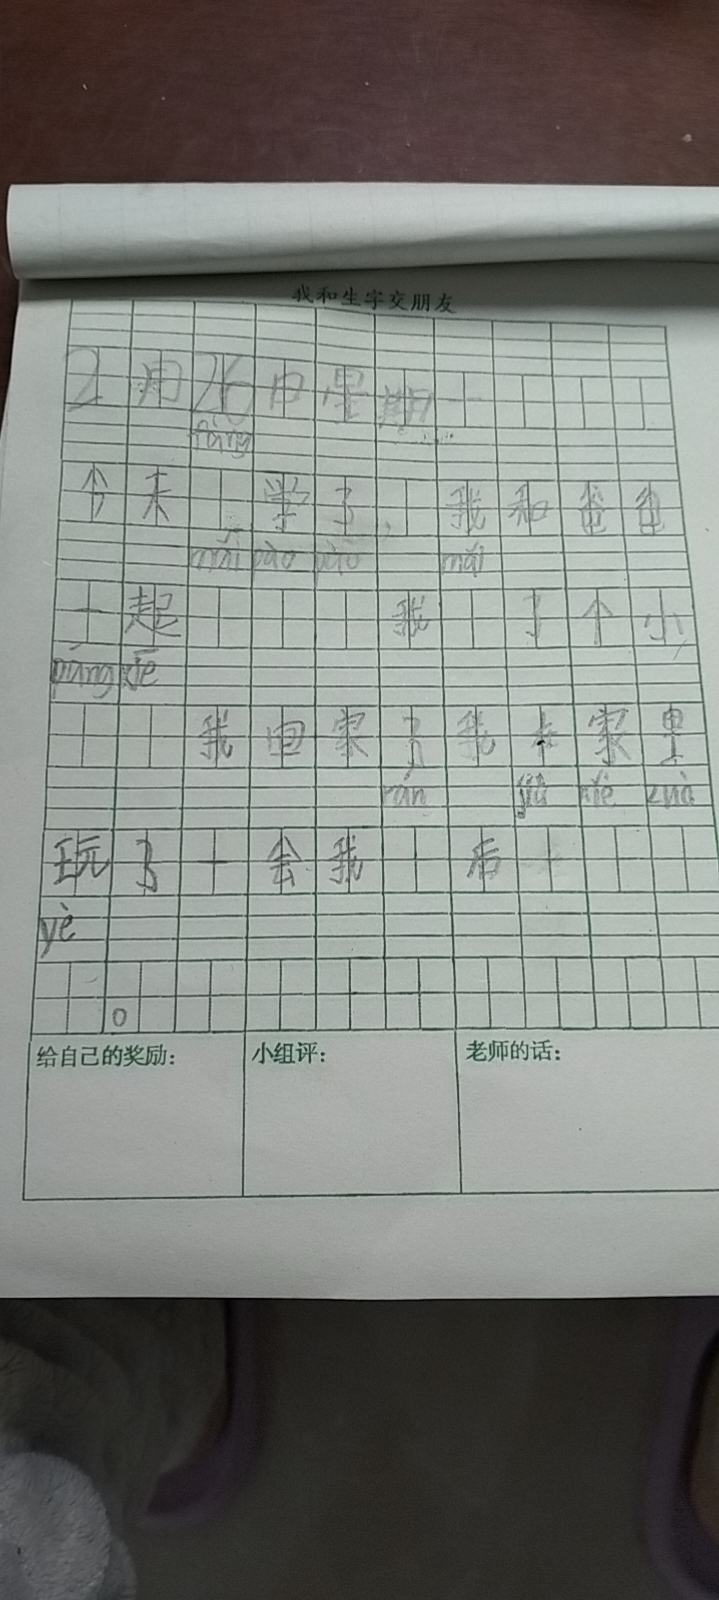 我和生字交朋友
2月26日星期一
fàng
今天 学了,我和爸爸
mǎi pào mǎi
一起 我 了个小
páng xiè
我回家了我在家里
rán jiù xiě zuò
玩了一会我 后
yè
。
给自己的奖励: 小组评: 老师的话: